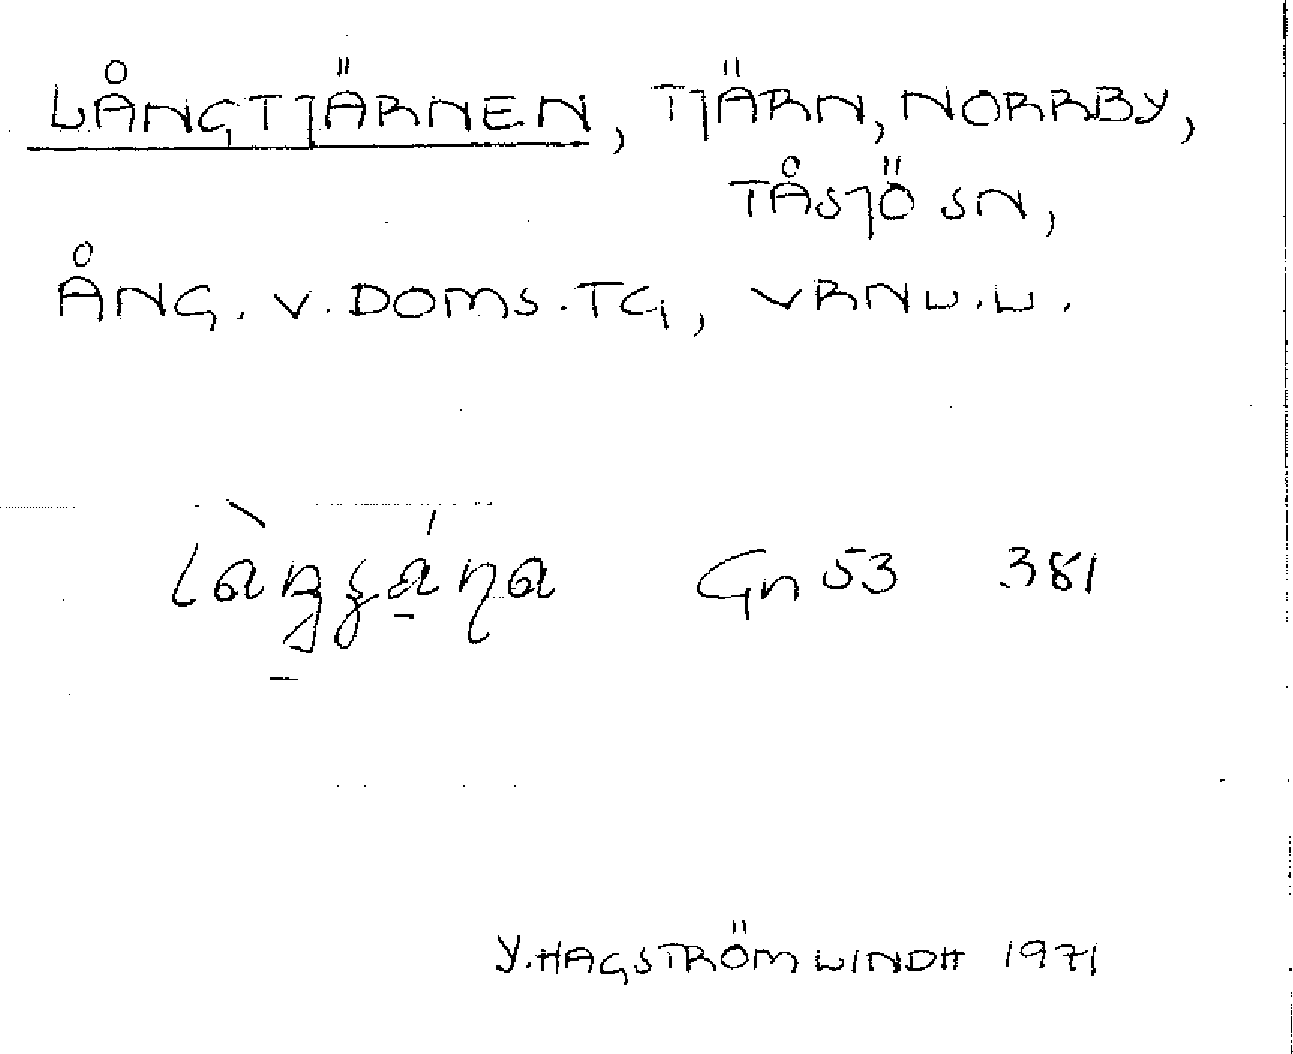 LÅNGTJÄRNEN, TJÄRN, NORRBY,
TÅSJÖ SN,
ÅNG. V. DOMS. TG,
Gn 53 381
Y. HAGSTRÖM LINDH 1971